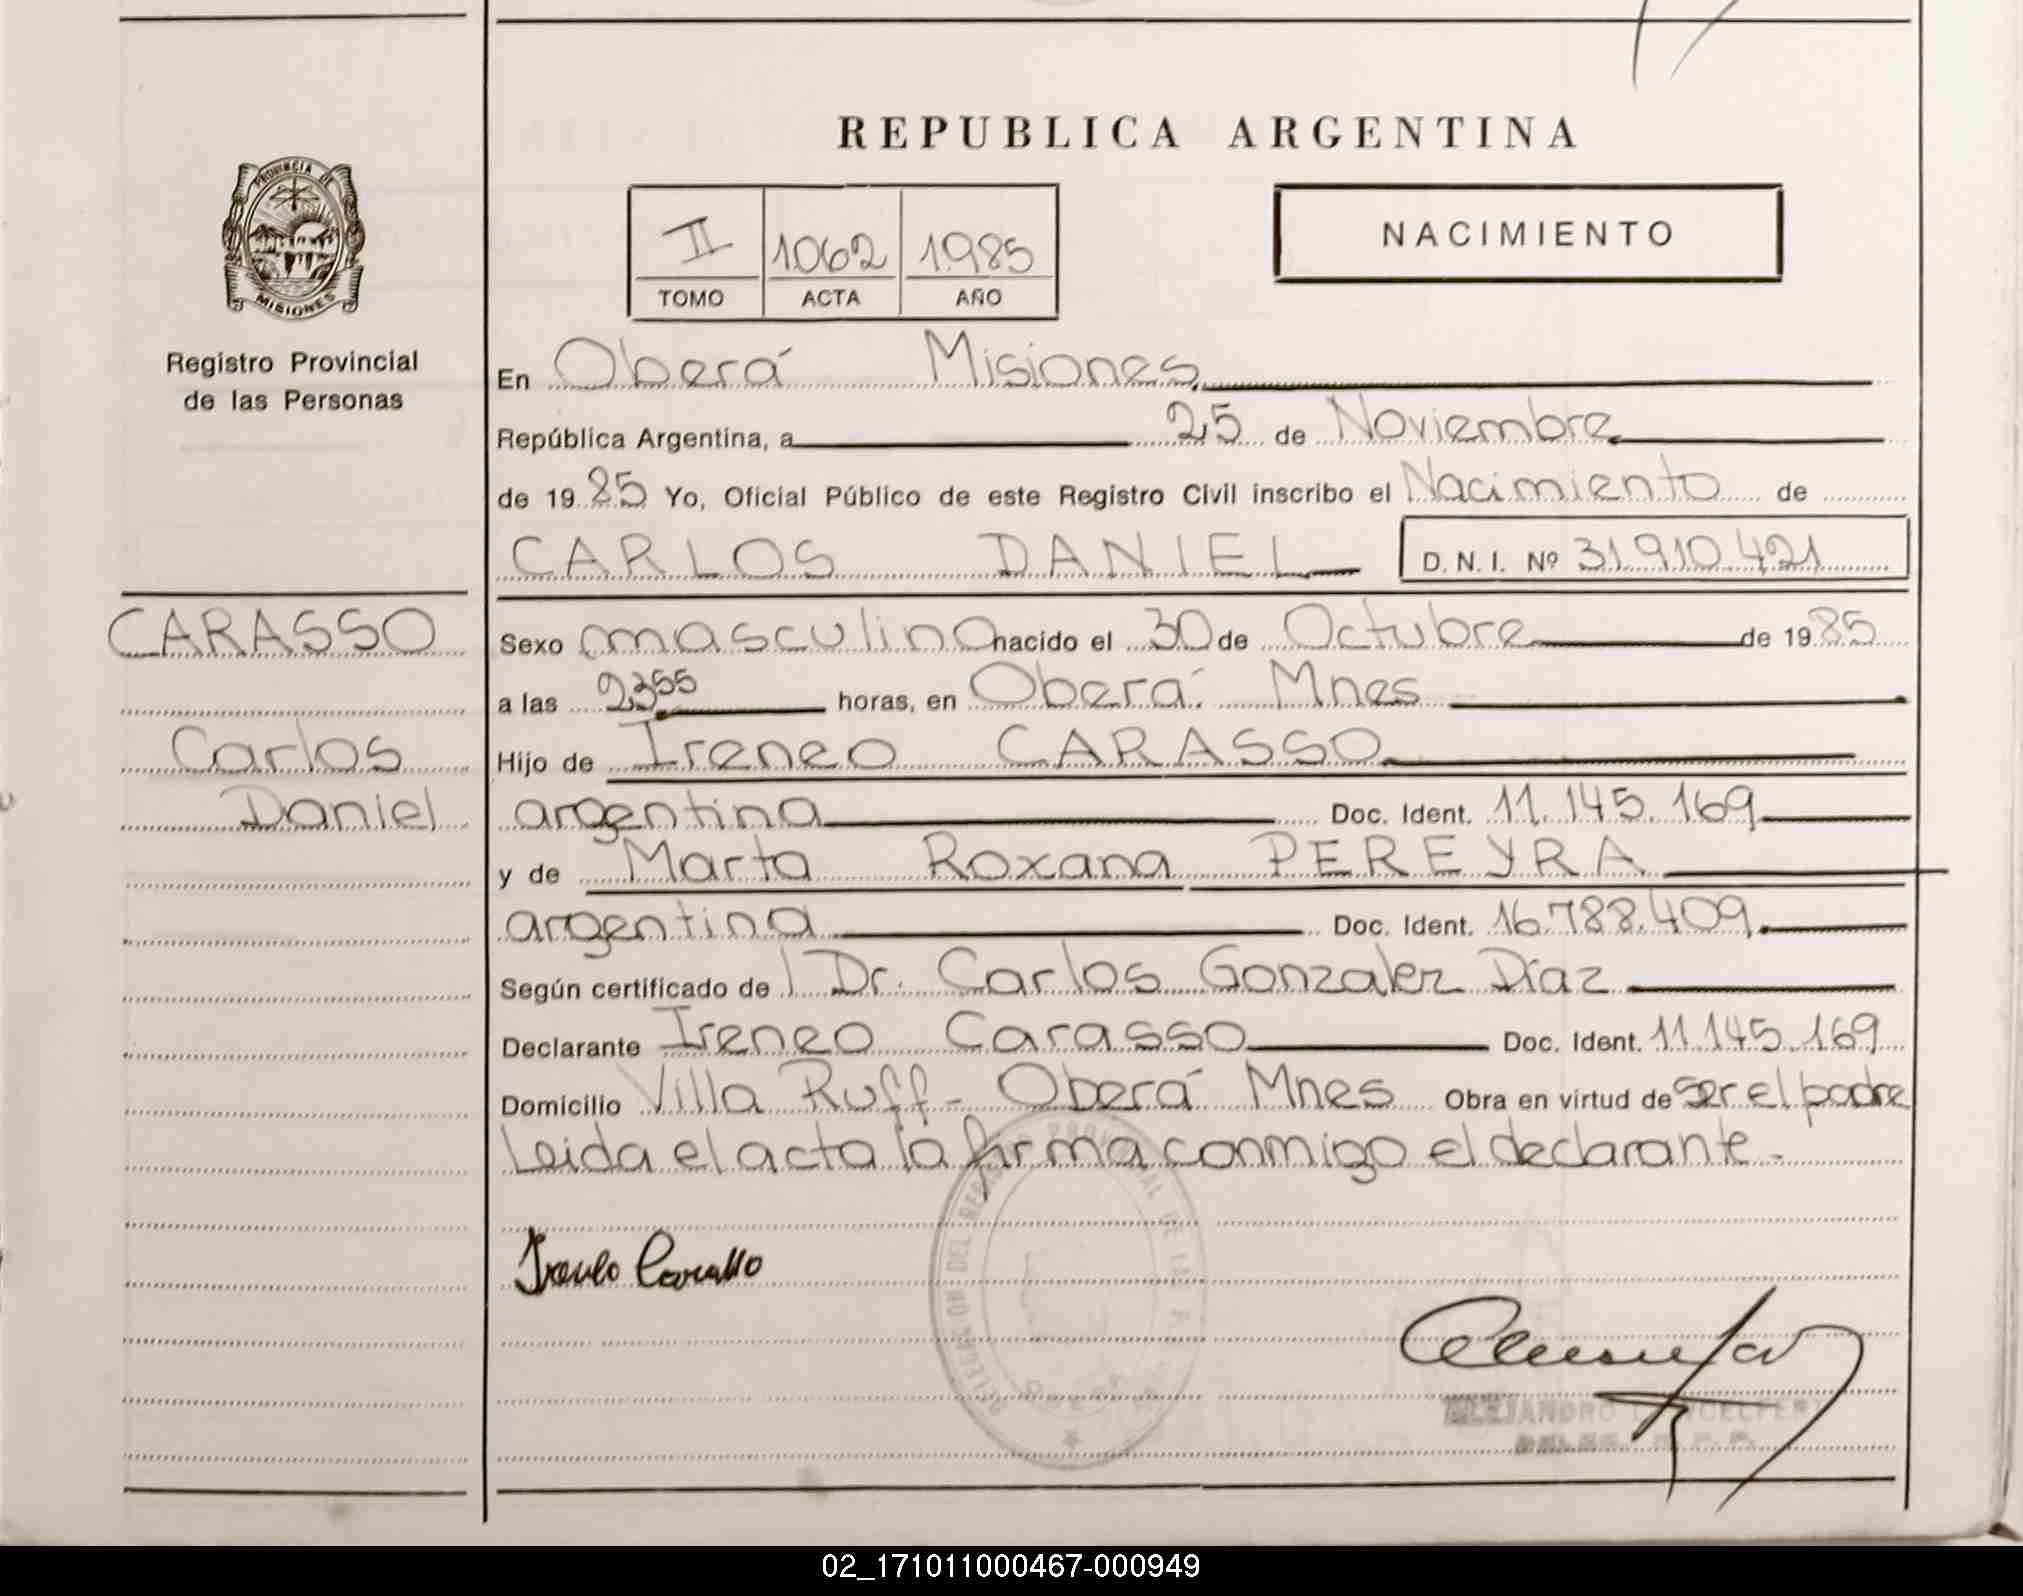 REPUBLICA ARGENTINA
PROVINCIA DE
MISIONES
Registro Provincial
de las Personas
II 1062 1985
TOMO ACTA AÑO
NACIMIENTO
En Oberá Misiones
República Argentina, a 25 de Noviembre
de 1985 Yo, Oficial Público de este Registro Civil inscribo el Nacimiento de
CARLOS DANIEL D. N. I. Nº 31.910.421
CARASSO
Carlos
Daniel
Sexo masculino nacido el 30 de Octubre de 1985
a las 23 55 horas, en Oberá Mnes
Hijo de Ireneo CARASSO
argentina Doc. Ident. 11.145.169
y de Marta Roxana PEREYRA
argentina Doc. Ident. 16.788.409
Según certificado de l Dr. Carlos Gonzalez Díaz
Declarante Ireneo Carasso Doc. Ident. 11.145.169
Domicilio Villa Ruff - Oberá Mnes Obra en virtud de ser el padre
Leida el acta la firma conmigo el declarante -
ALEJANDRO
02_171011000467-000949